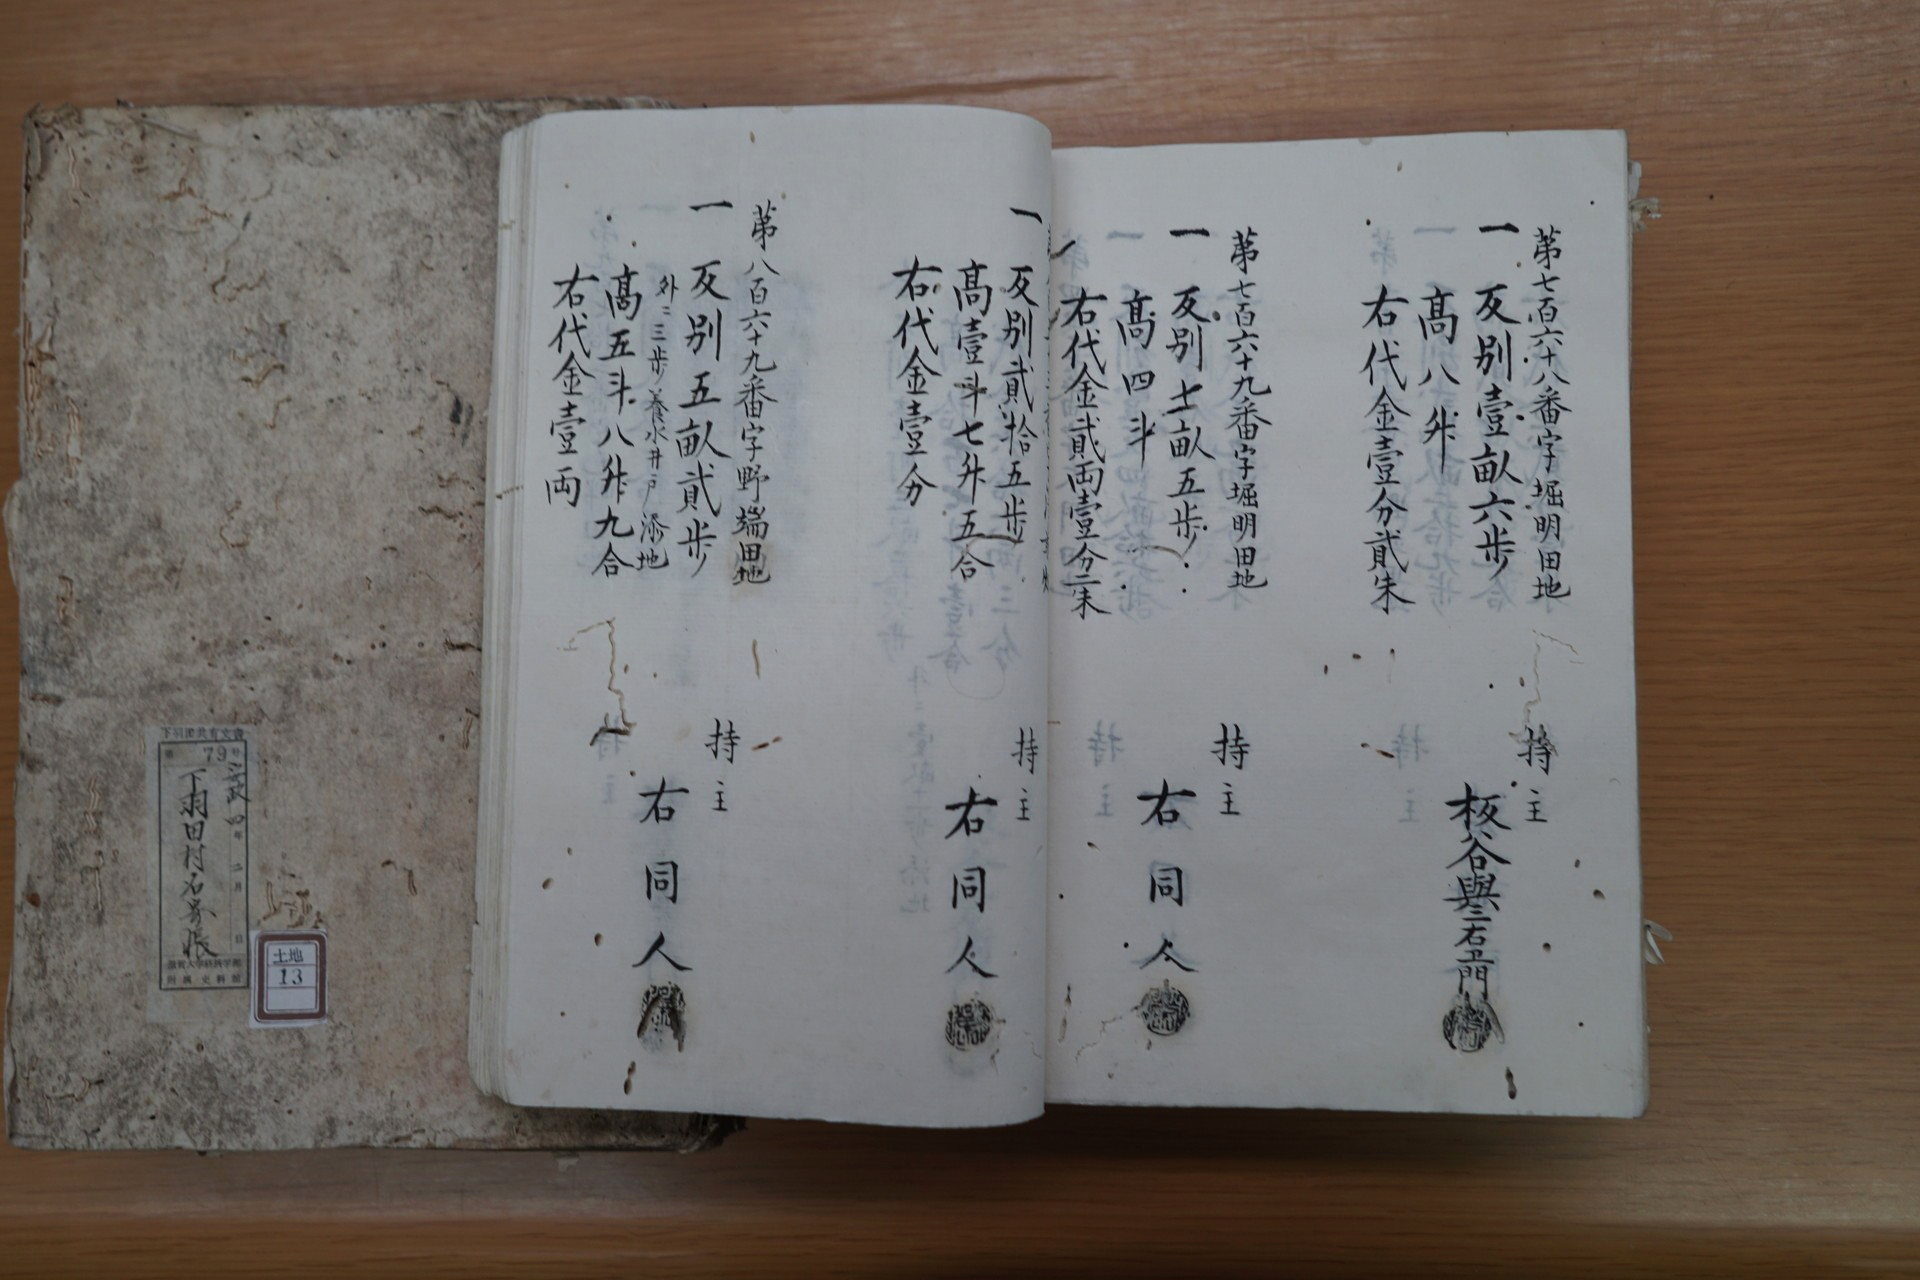 第七百六十八番字堀明田地
一 反別壹畝六歩
髙八升
右代金壹分貳朱
持主
板谷與三右卫門
第七百六十九番字堀明田地
一 反別七畝五歩
髙四斗
右代金貳両壹分二朱
持主
右同人
一 反別貳拾五歩
髙壹斗七升五合
右代金壹分
持主
右同人
第八百六十九番字野端田地
一 反別五畝貳歩
外ニ三歩養水井戸添地
髙五斗八升九合
右代金壹両
持主
右同人
79
四年二月 日
下羽田村名寄帳
土地
13